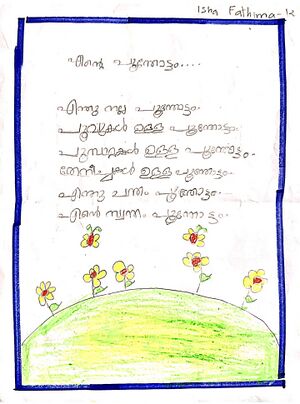 Isha Fathima - 12
എന്റെ പൂന്തോട്ടം....
എന്തു നല്ല പൂന്തോട്ടം.
പൂവുകൾ ഉള്ള പൂന്തോട്ടം.
പൂമ്പാറ്റകൾ ഉള്ള പൂന്തോട്ടം.
തേനീച്ചകൾ ഉള്ള പൂന്തോട്ടം.
എന്തു ചന്തം പൂന്തോട്ടം.
എന്റെ സ്വന്തം പൂന്തോട്ടം.